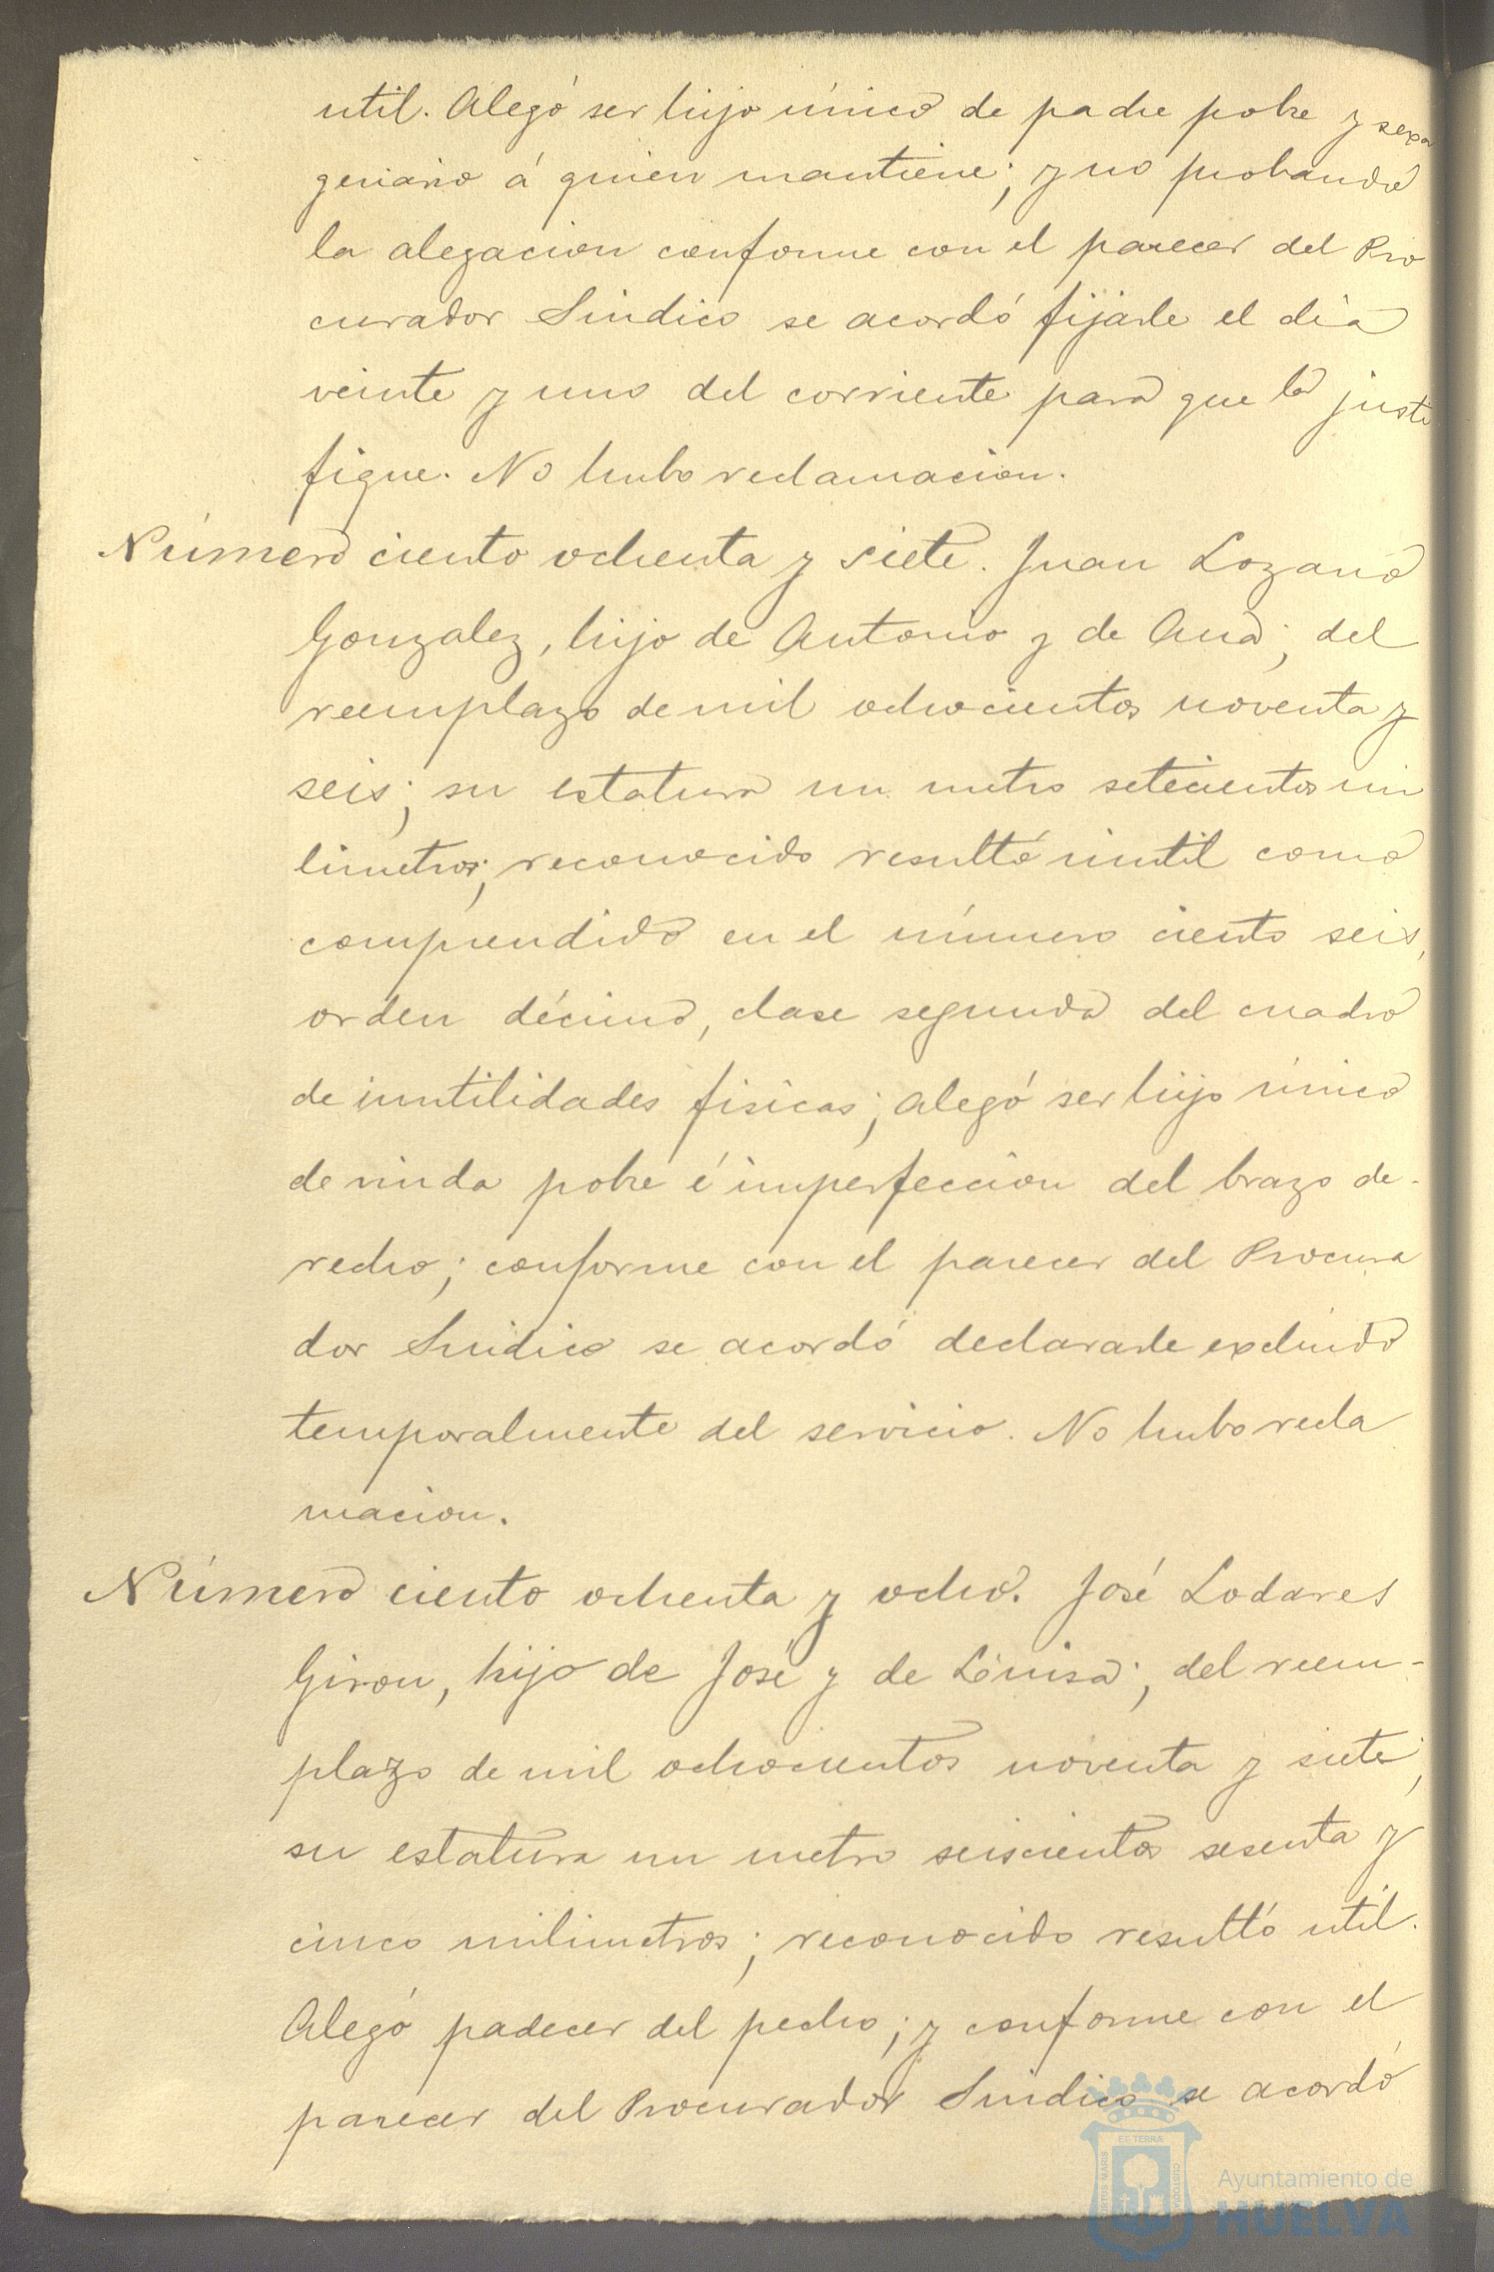 util. Alegó ser hijo único de padre pobre y sexa
genario á quien mantiene; y no probando
la alegacion conforme con el parecer del Pro
curador Sindico se acordó fijarle el dia
veinte y uno del corriente para que la justi
fique. No hubo reclamacion.
Número ciento ochenta y siete. Juan Lozano
Gonzalez, hijo de Antonio y de Ana; del
reemplazo de mil ochocientos noventa y
seis; su estatura un metro setecientos mi
limetros; reconocido resultó inutil como
comprendido en el número ciento seis,
orden décimo, clase segunda del cuadro
de inutilidades fisicas; alegó ser hijo único
de viuda pobre é imperfeccion del brazo de-
recho; conforme con el parecer del Procura
dor Sindico se acordó declararle excluido
temporalmente del servicio. No hubo recla
macion.
Número ciento ochenta y ocho. José Lodares
Giron, hijo de José y de Luisa; del reem-
plazo de mil ochocientos noventa y siete;
su estatura un metro seiscientos sesenta y
cinco milimetros; reconocido resultó util.
Alegó padecer del pecho; y conforme con el
parecer del Procurador Sindico se acordó
ET TERRA
Ayuntamiento de
HUELVA